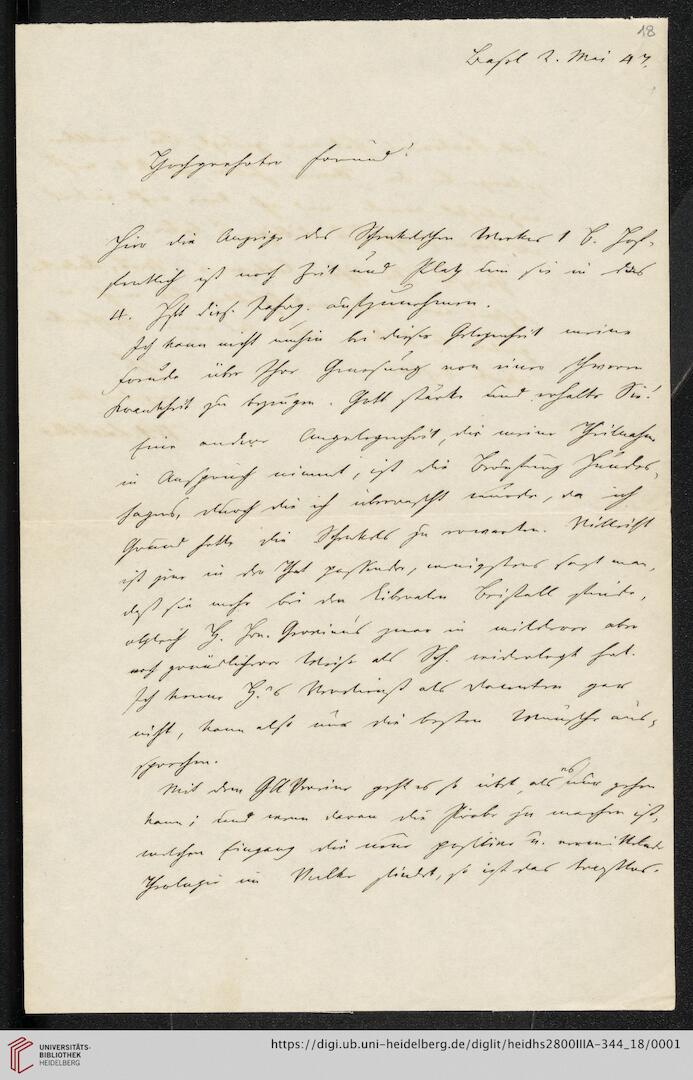 18
Basel 2. Mai 47.
Hochgeehrter Freund!
Hier die Anzeige des Schenkelschen Werkes 1 B. Hof-
fentlich ist noch Zeit und Platz um sie in das
4. Heft dies. Jahrg. aufzunehmen.
Ich kann nicht umhin bei dieser Gelegenheit meine
Freude über Ihre Genesung von einer schweren
Krankheit zu bezeugen. Gott stärke und erhalte Sie!
Eine andere Angelegenheit, die meine Theilnahme
in Anspruch nimmt, ist die Berufung Hundes-
hagens, durch die ich überrascht wurde, da ich
Grund hatte die Schenkels zu erwarten. Vielleicht
ist jene in der That passender, wenigstens sagt man,
daß sie mehr bei den Liberalen Beifall finde,
obgleich H. Hrn. Gervinus zwar in milderer aber
noch gründlicherer Weise als Sch. widerlegt hat.
Ich kenne H.'s Verdienst als Docenten gar
nicht, kann also nur die besten Wünsche aus-
sprechen.
Mit dem GAVereine geht es so übel, als es nur gehen
kann; und wenn davon die Probe zu machen ist,
welchen Eingang die neue positive u. vermittelnde
Theologie im Volke findet, so ist das trostlos.
UNIVERSITÄTS-
BIBLIOTHEK
HEIDELBERG
https://digi.ub.uni-heidelberg.de/diglit/heidhs2800IIIA-344_18/0001